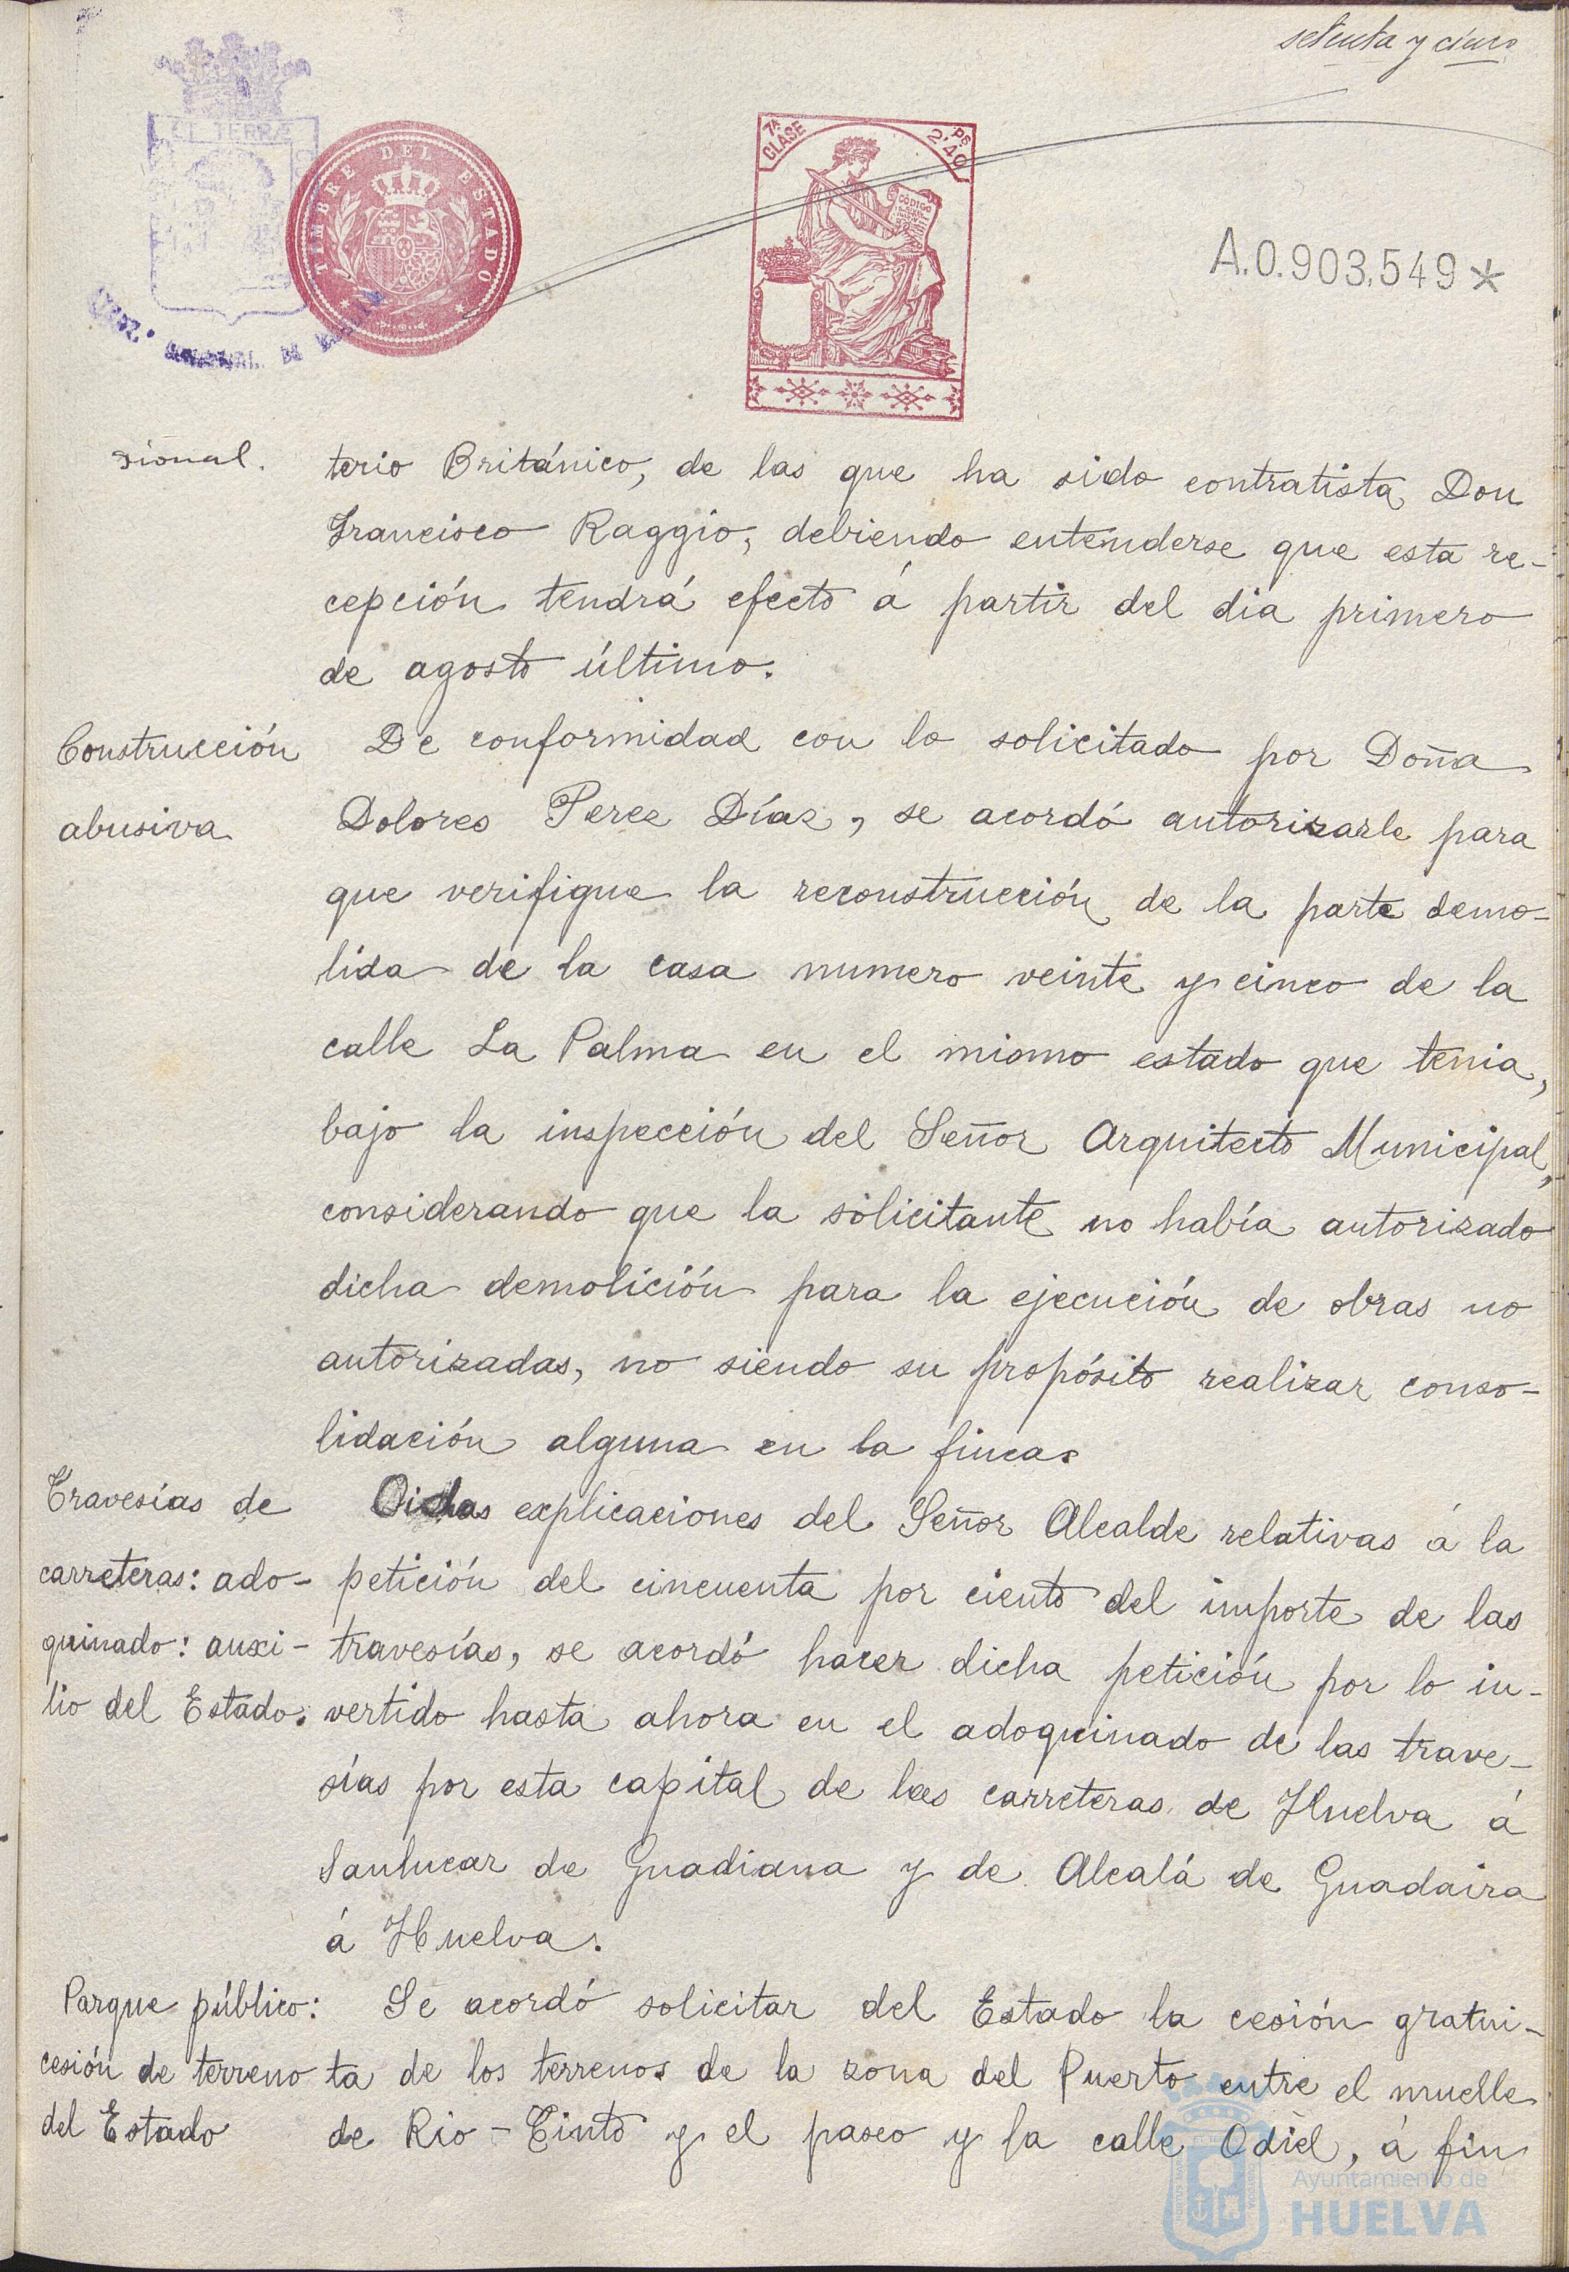 setenta y cinco
ET TERRÆ
TIMBRE DEL ESTADO
7ª CLASE
2'40 Ps
CÓDIGO
A.0.903,549*
sional.
terio Británico, de las que ha sido contratista Don
Francisco Raggio, debiendo entenderse que esta re-
cepción tendrá efecto á partir del dia primero
de agosto último.
Construcción
abusiva
De conformidad con lo solicitado por Doña
Dolores Perez Díaz, se acordó autorizarle para
que verifique la reconstrucción de la parte demo-
lida de la casa numero veinte y cinco de la
calle La Palma en el mismo estado que tenia,
bajo la inspección del Señor Arquitecto Municipal,
considerando que la solicitante no había autorizado
dicha demolición para la ejecución de obras no
autorizadas, no siendo su propósito realizar conso-
lidación alguna en la finca.
Travesías de
carreteras: ado-
quinado: auxi-
lio del Estado.
Oidas explicaciones del Señor Alcalde relativas á la
petición del cincuenta por ciento del importe de las
travesías, se acordó hacer dicha petición por lo in-
vertido hasta ahora en el adoquinado de las trave-
sías por esta capital de las carreteras de Huelva á
Sanlucar de Guadiana y de Alcalá de Guadaira
á Huelva.
Parque público:
cesión de terreno
del Estado
Se acordó solicitar del Estado la cesión gratui-
ta de los terrenos de la zona del Puerto entre el muelle
de Rio-Tinto y el paseo y la calle Odiel, á fin
Ayuntamiento de
HUELVA